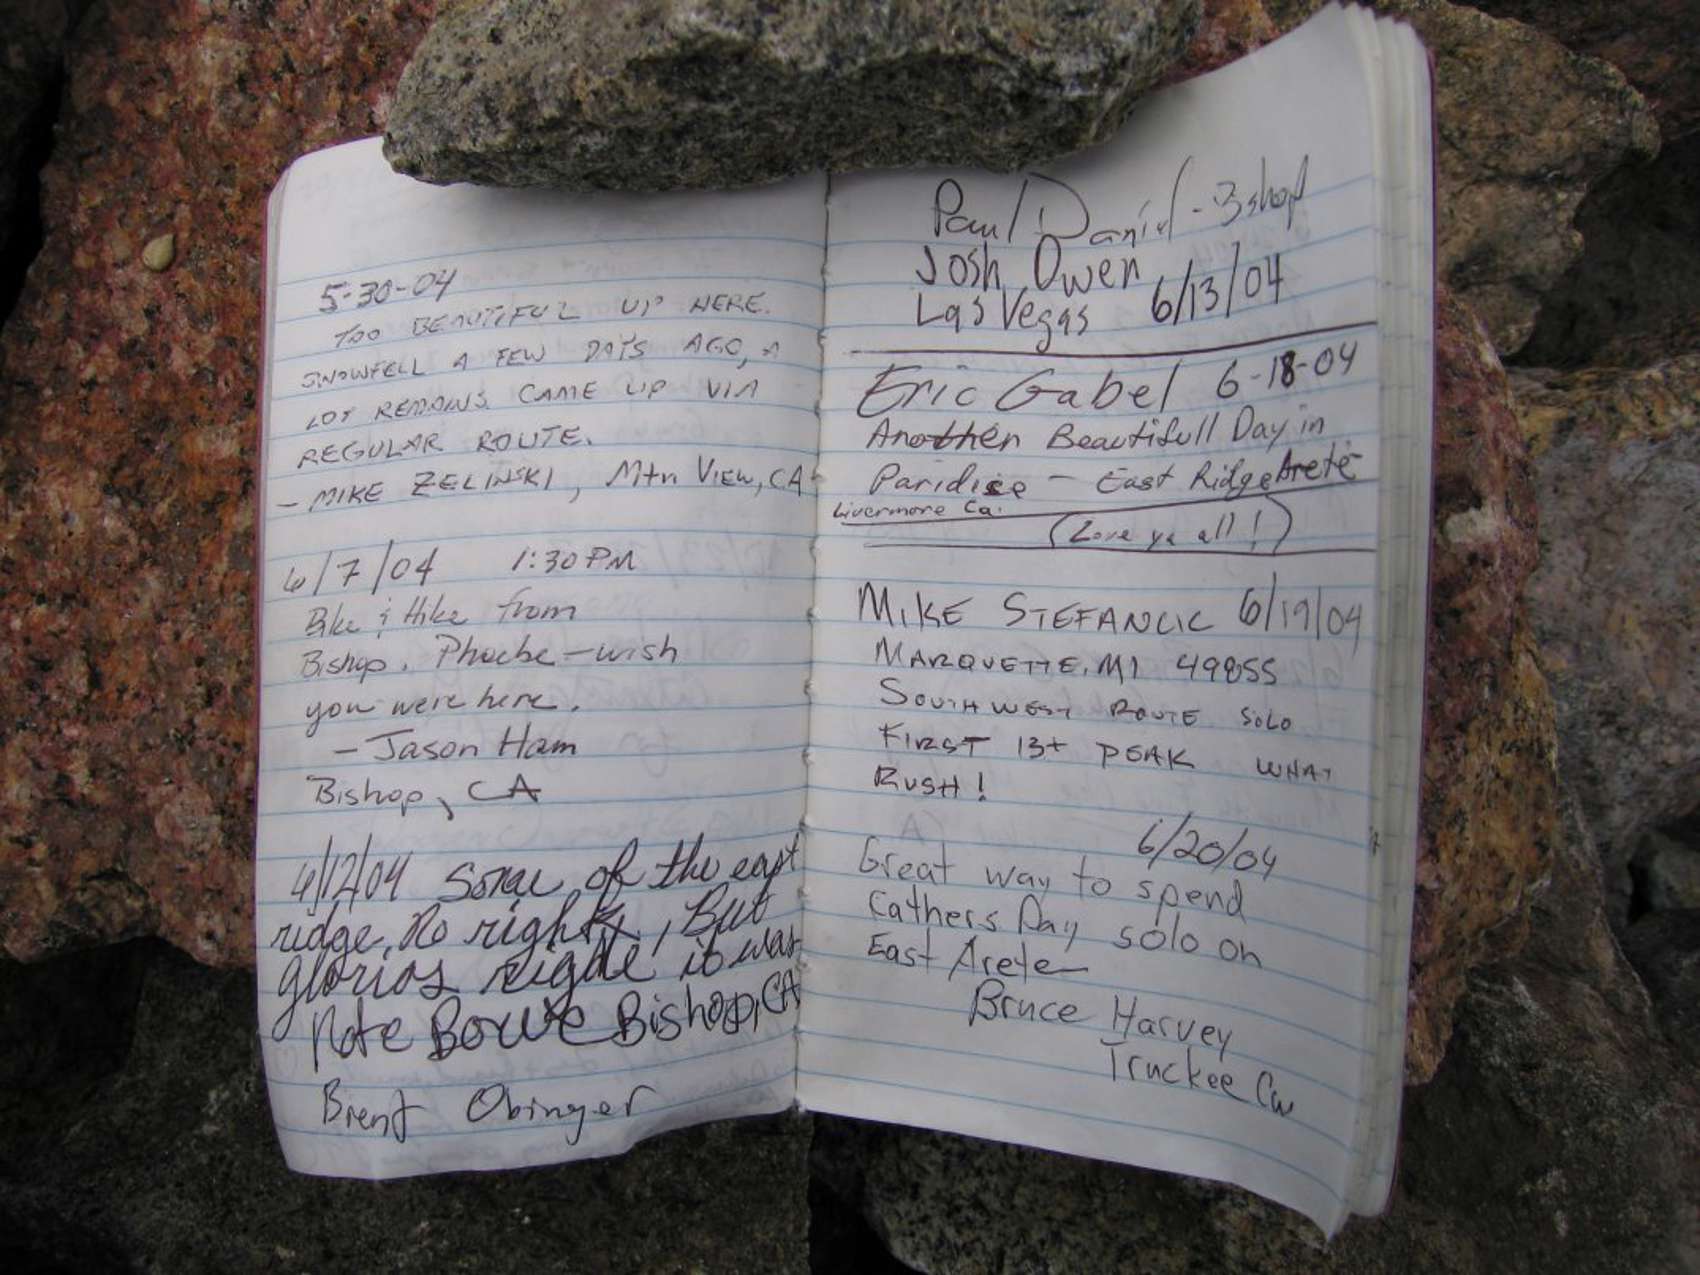 5-30-04
TOO BEAUTIFUL UP HERE.
SNOWFELL A FEW DAYS AGO, A
LOT REMAINS. CAME UP VIA
REGULAR ROUTE.
- MIKE ZELINSKI, Mtn VIEW, CA
6/7/04 1:30 PM
Bike & Hike from
Bishop. Phoebe - wish
you were here.
- Jason Ham
Bishop, CA
6/12/04 Some of the east
ridge, No right, But
glorios it was
Bishop, CA
Brent Obinger
Paul Daniel - Bishop
Josh Owen
Las Vegas 6/13/04
Eric Gabel 6-18-04
Another Beautifull Day in
Paridise - East Ridge Arete
Livermore Ca.
(Love ya all!)
MIKE STEFANCIC 6/19/04
MARQUETTE, MI 49855
SOUTHWEST ROUTE SOLO
FIRST 13+ PEAK WHAT
RUSH!
6/20/04
Great way to spend
Fathers Day solo on
East Arete
Bruce Harvey
Truckee Ca